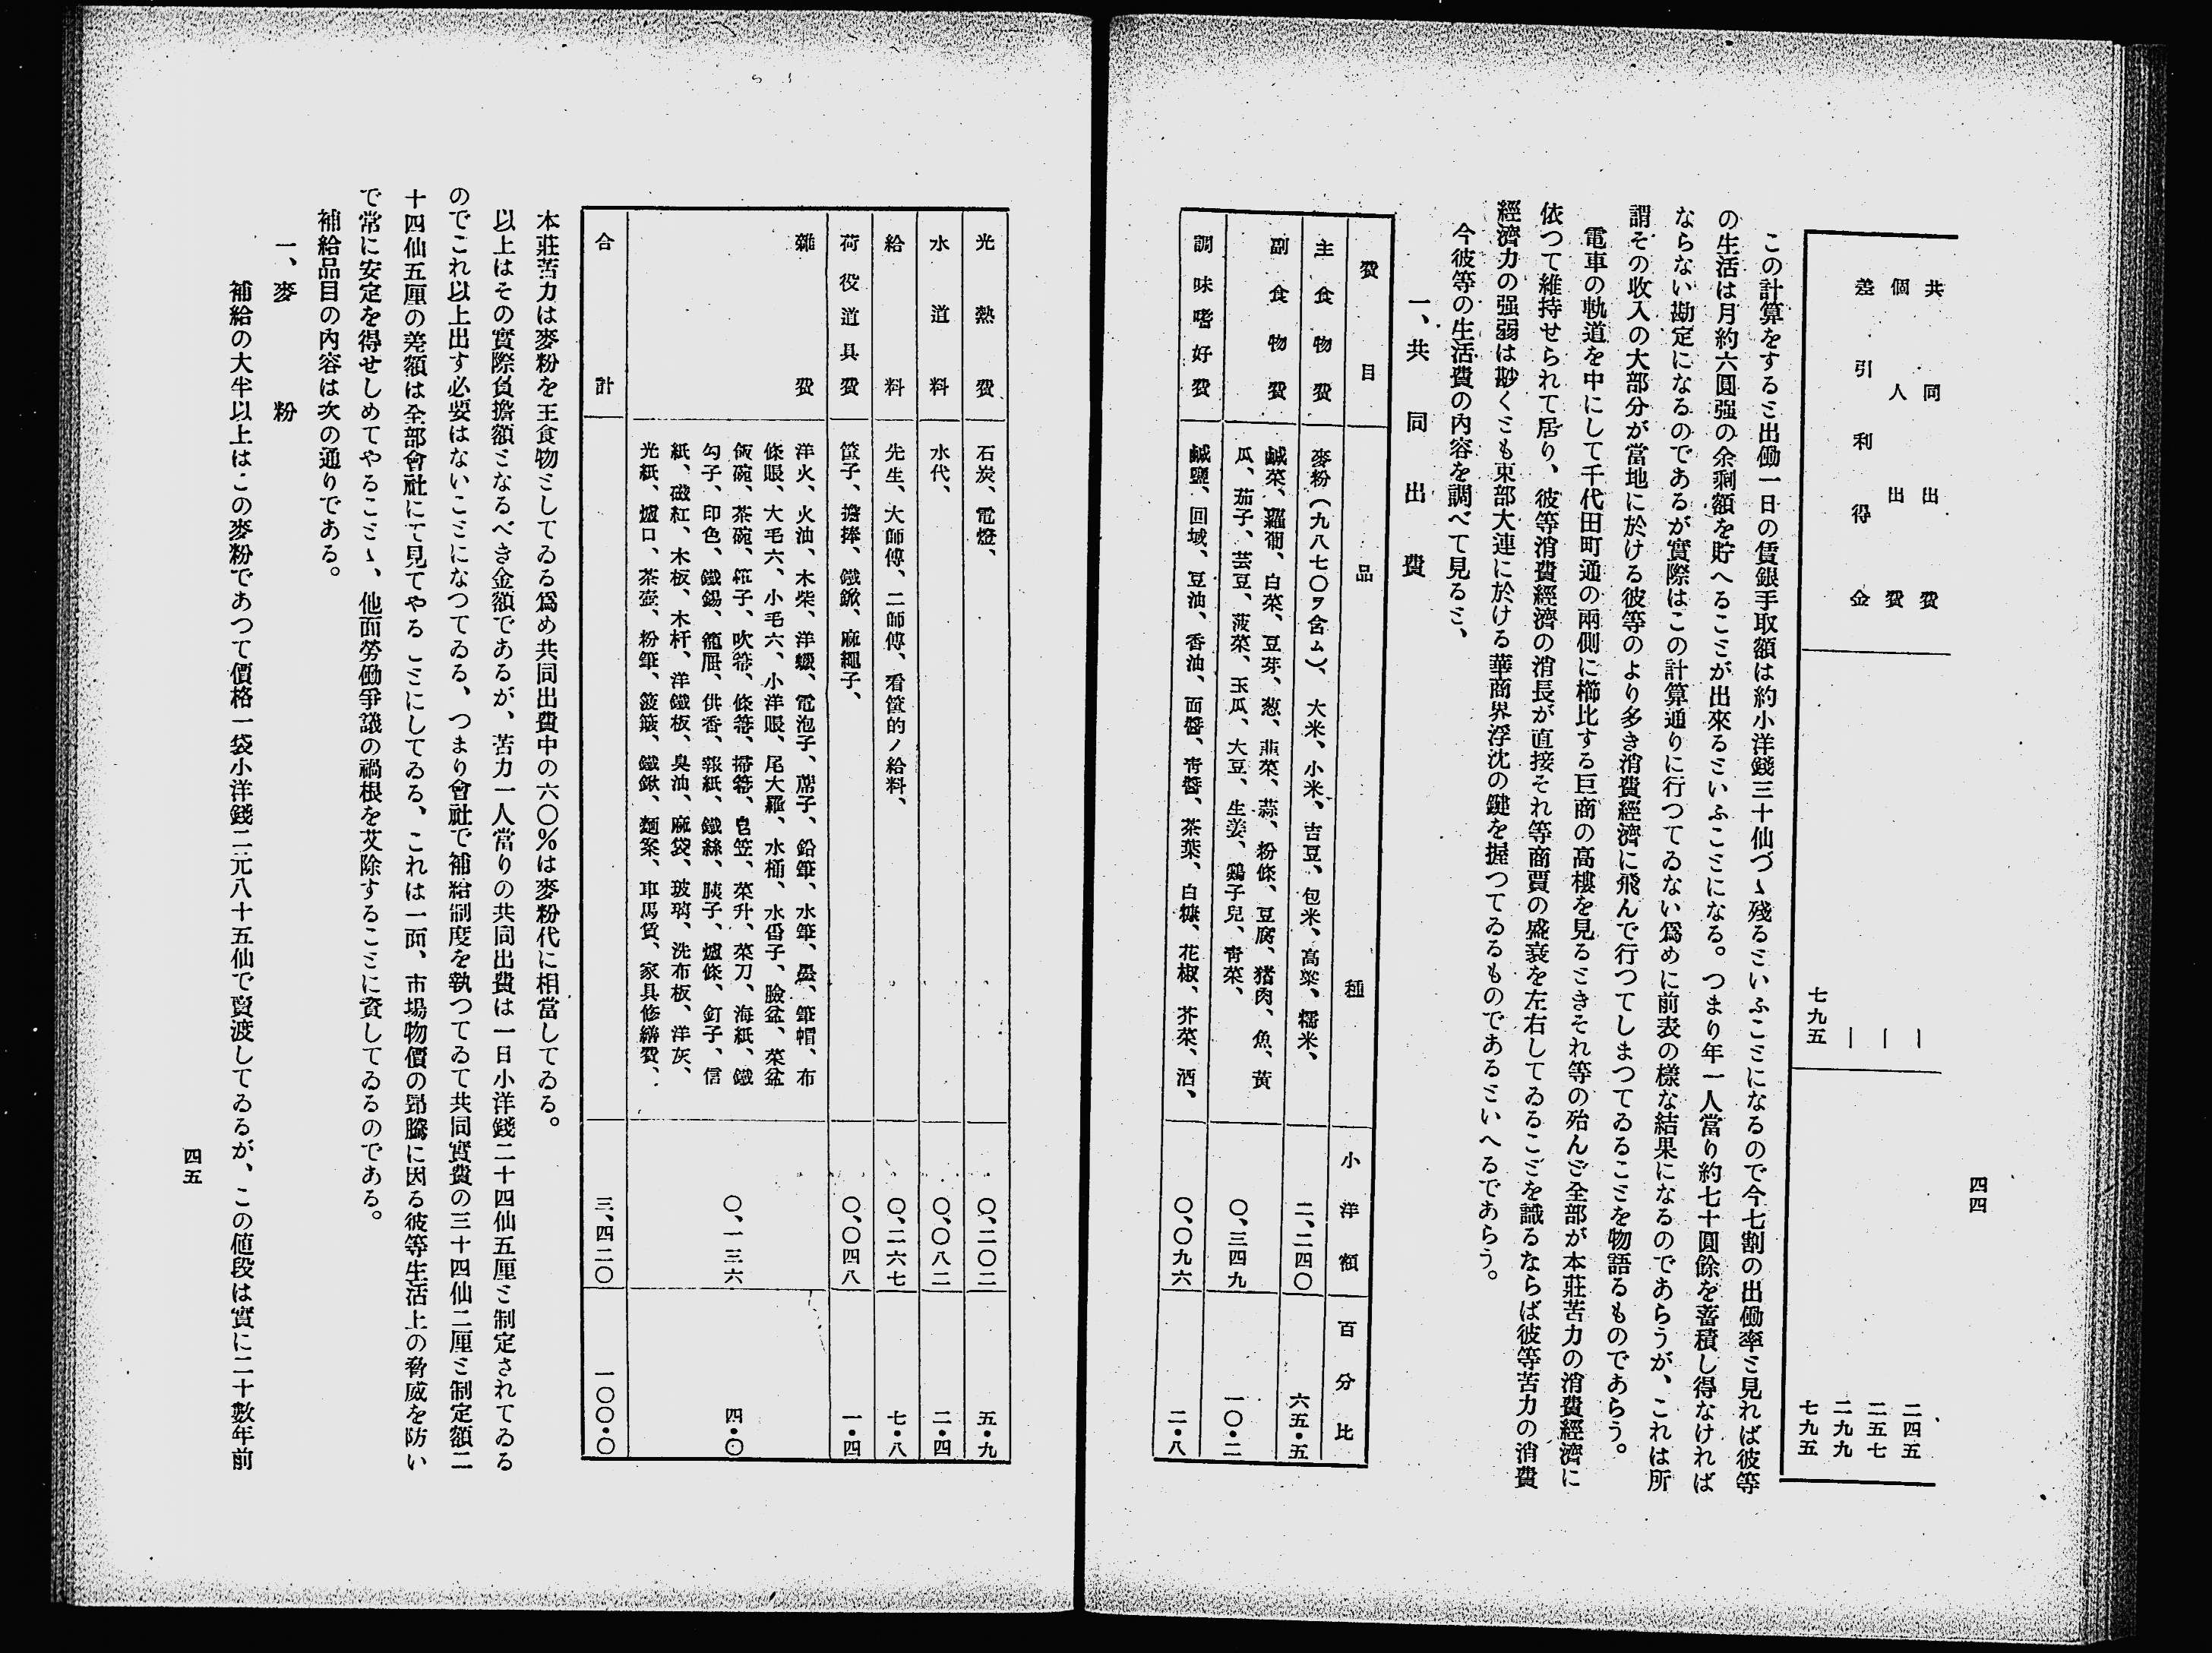 四四
共同出費 ― 二四五
個人出費 ― 二五七
差引利得金 ― 二九九
七九五 七九五
この計算をするミ出働一日の賃銀手取額は約小洋錢三十仙づゝ殘るミいふこミになるので今七割の出働率ミ見れば彼等
の生活は月約六圓強の余剩額を貯へるこミが出來るミいふこミになる。つまり年一人當り約七十圓餘を蓄積し得なければ
ならない勘定になるのであるが實際はこの計算通りに行つてゐない爲めに前表の樣な結果になるのであらうが、これは所
謂その收入の大部分が當地に於ける彼等のより多き消費經濟に飛んで行つてしまつてゐるこミを物語るものであらう。
電車の軌道を中にして千代田町通の兩側に櫛比する巨商の高樓を見るミきそれ等の殆んど全部が本莊苦力の消費經濟に
依つて維持せられて居り、彼等消費經濟の消長が直接それ等商賈の盛衰を左右してゐるこミを識るならば彼等苦力の消費
經濟力の强弱は尠くミも東部大連に於ける華商界浮沈の鍵を握つてゐるものであるミいへるであらう。
今彼等の生活費の內容を調べて見るミ、
一、共同出費
費目 品種 小洋額 百分比
主食物費 麥粉(九八七〇ヲ含ム)、大米、小米、吉豆、包米、高粱、糯米、 二、二四〇 六五・五
副食物費 鹹菜、蘿蔔、白菜、豆芽、葱、韮菜、蒜、粉條、豆腐、猪肉、魚、黃
瓜、茄子、芸豆、菠菜、玉瓜、大豆、生姜、鷄子兒、靑菜、 〇、三四九 一〇・二
調味嗜好費 鹹鹽、回域、豆油、香油、面醬、靑醬、茶葉、白糠、花椒、芥菜、酒、 〇、〇九六 二・八
光熱費 石炭、電燈、 〇、二〇二 五・九
水道料 水代、 〇、〇八二 二・四
給料 先生、大師傅、二師傅、看筐的ノ給料、 〇、二六七 七・八
荷役道具費 筐子、擔捧、鐵鍁、麻繩子、 〇、〇四八 一・四
雜費 洋火、火油、木柴、洋蠟、電泡子、蓆子、鉛筆、水筆、墨、筆帽、布
條賬、大毛六、小毛六、小洋賬、尾大羅、水桶、水舀子、臉盆、菜盆
飯碗、茶碗、筷子、吹箒、條箒、掃箒、皂笠、菜升、菜刀、海紙、鐵
勾子、印色、鐵錫、籠屉、供香、報紙、鐵絲、胰子、爐條、釘子、信
紙、磁紅、木板、木杆、洋鐵板、臭油、麻袋、玻璃、洗布板、洋灰、
光紙、爐口、茶壺、粉筆、簸箕、鐵鍬、麵案、車馬賃、家具修繕費、 〇、一三六 四・〇
合計 三、四二〇 一〇〇・〇
本莊苦力は麥粉を王食物ミしてゐる爲め共同出費中の六〇%は麥粉代に相當してゐる。
以上はその實際負擔額ミなるべき金額であるが、苦力一人當りの共同出費は一日小洋錢二十四仙五厘ミ制定されてゐる
のでこれ以上出す必要はないこミになつてゐる、つまり會社で補給制度を執つてゐて共同實費の三十四仙二厘ミ制定額二
十四仙五厘の差額は全部會社にて見てやるこミにしてゐる、これは一面、市場物價の昻騰に因る彼等生活上の脅威を防い
で常に安定を得せしめてやるこミゝ、他面勞働爭議の禍根を艾除するこミに資してゐるのである。
補給品目の內容は次の通りである。
一、麥粉
補給の大半以上はこの麥粉であつて價格一袋小洋錢二元八十五仙で賣渡してゐるが、この値段は實に二十數年前
四五